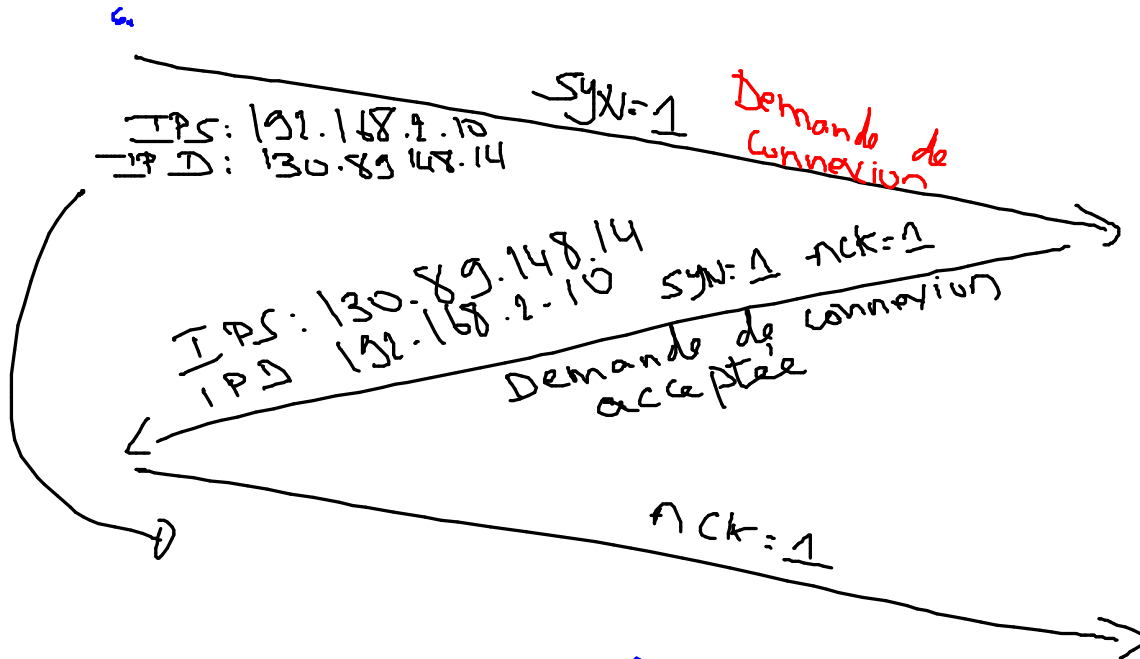 c.
SYN=1
Demande de
connexion
IPS: 192.168.2.10
IPD: 130.89.148.14
IPS: 130.89.148.14
IPD 192.168.2.10
SYN=1 ACK=1
Demande de connexion
acceptée
ACK=1